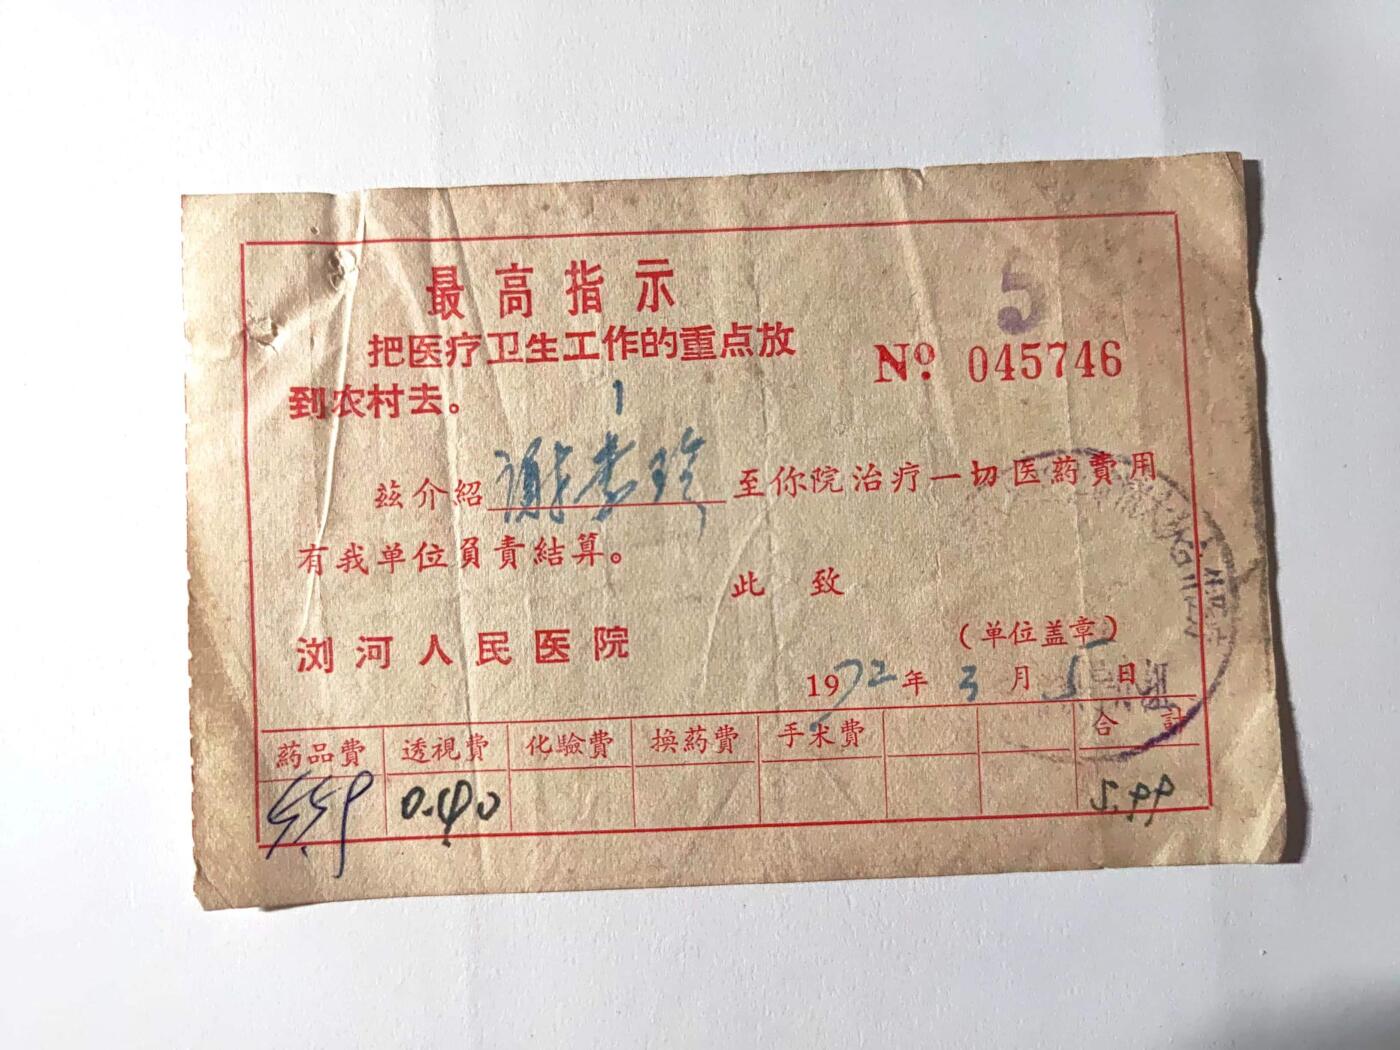 最高指示
5
把医疗卫生工作的重点放
到农村去。
No. 045746
1
兹介紹 谢杏珍 至你院治疗一切医药費用
有我单位負責結算。
此致
浏河人民医院
(单位盖章)
1972年3月5日
药品費 透視費 化驗費 換药費 手术費 合計
5.59 0.40 5.99